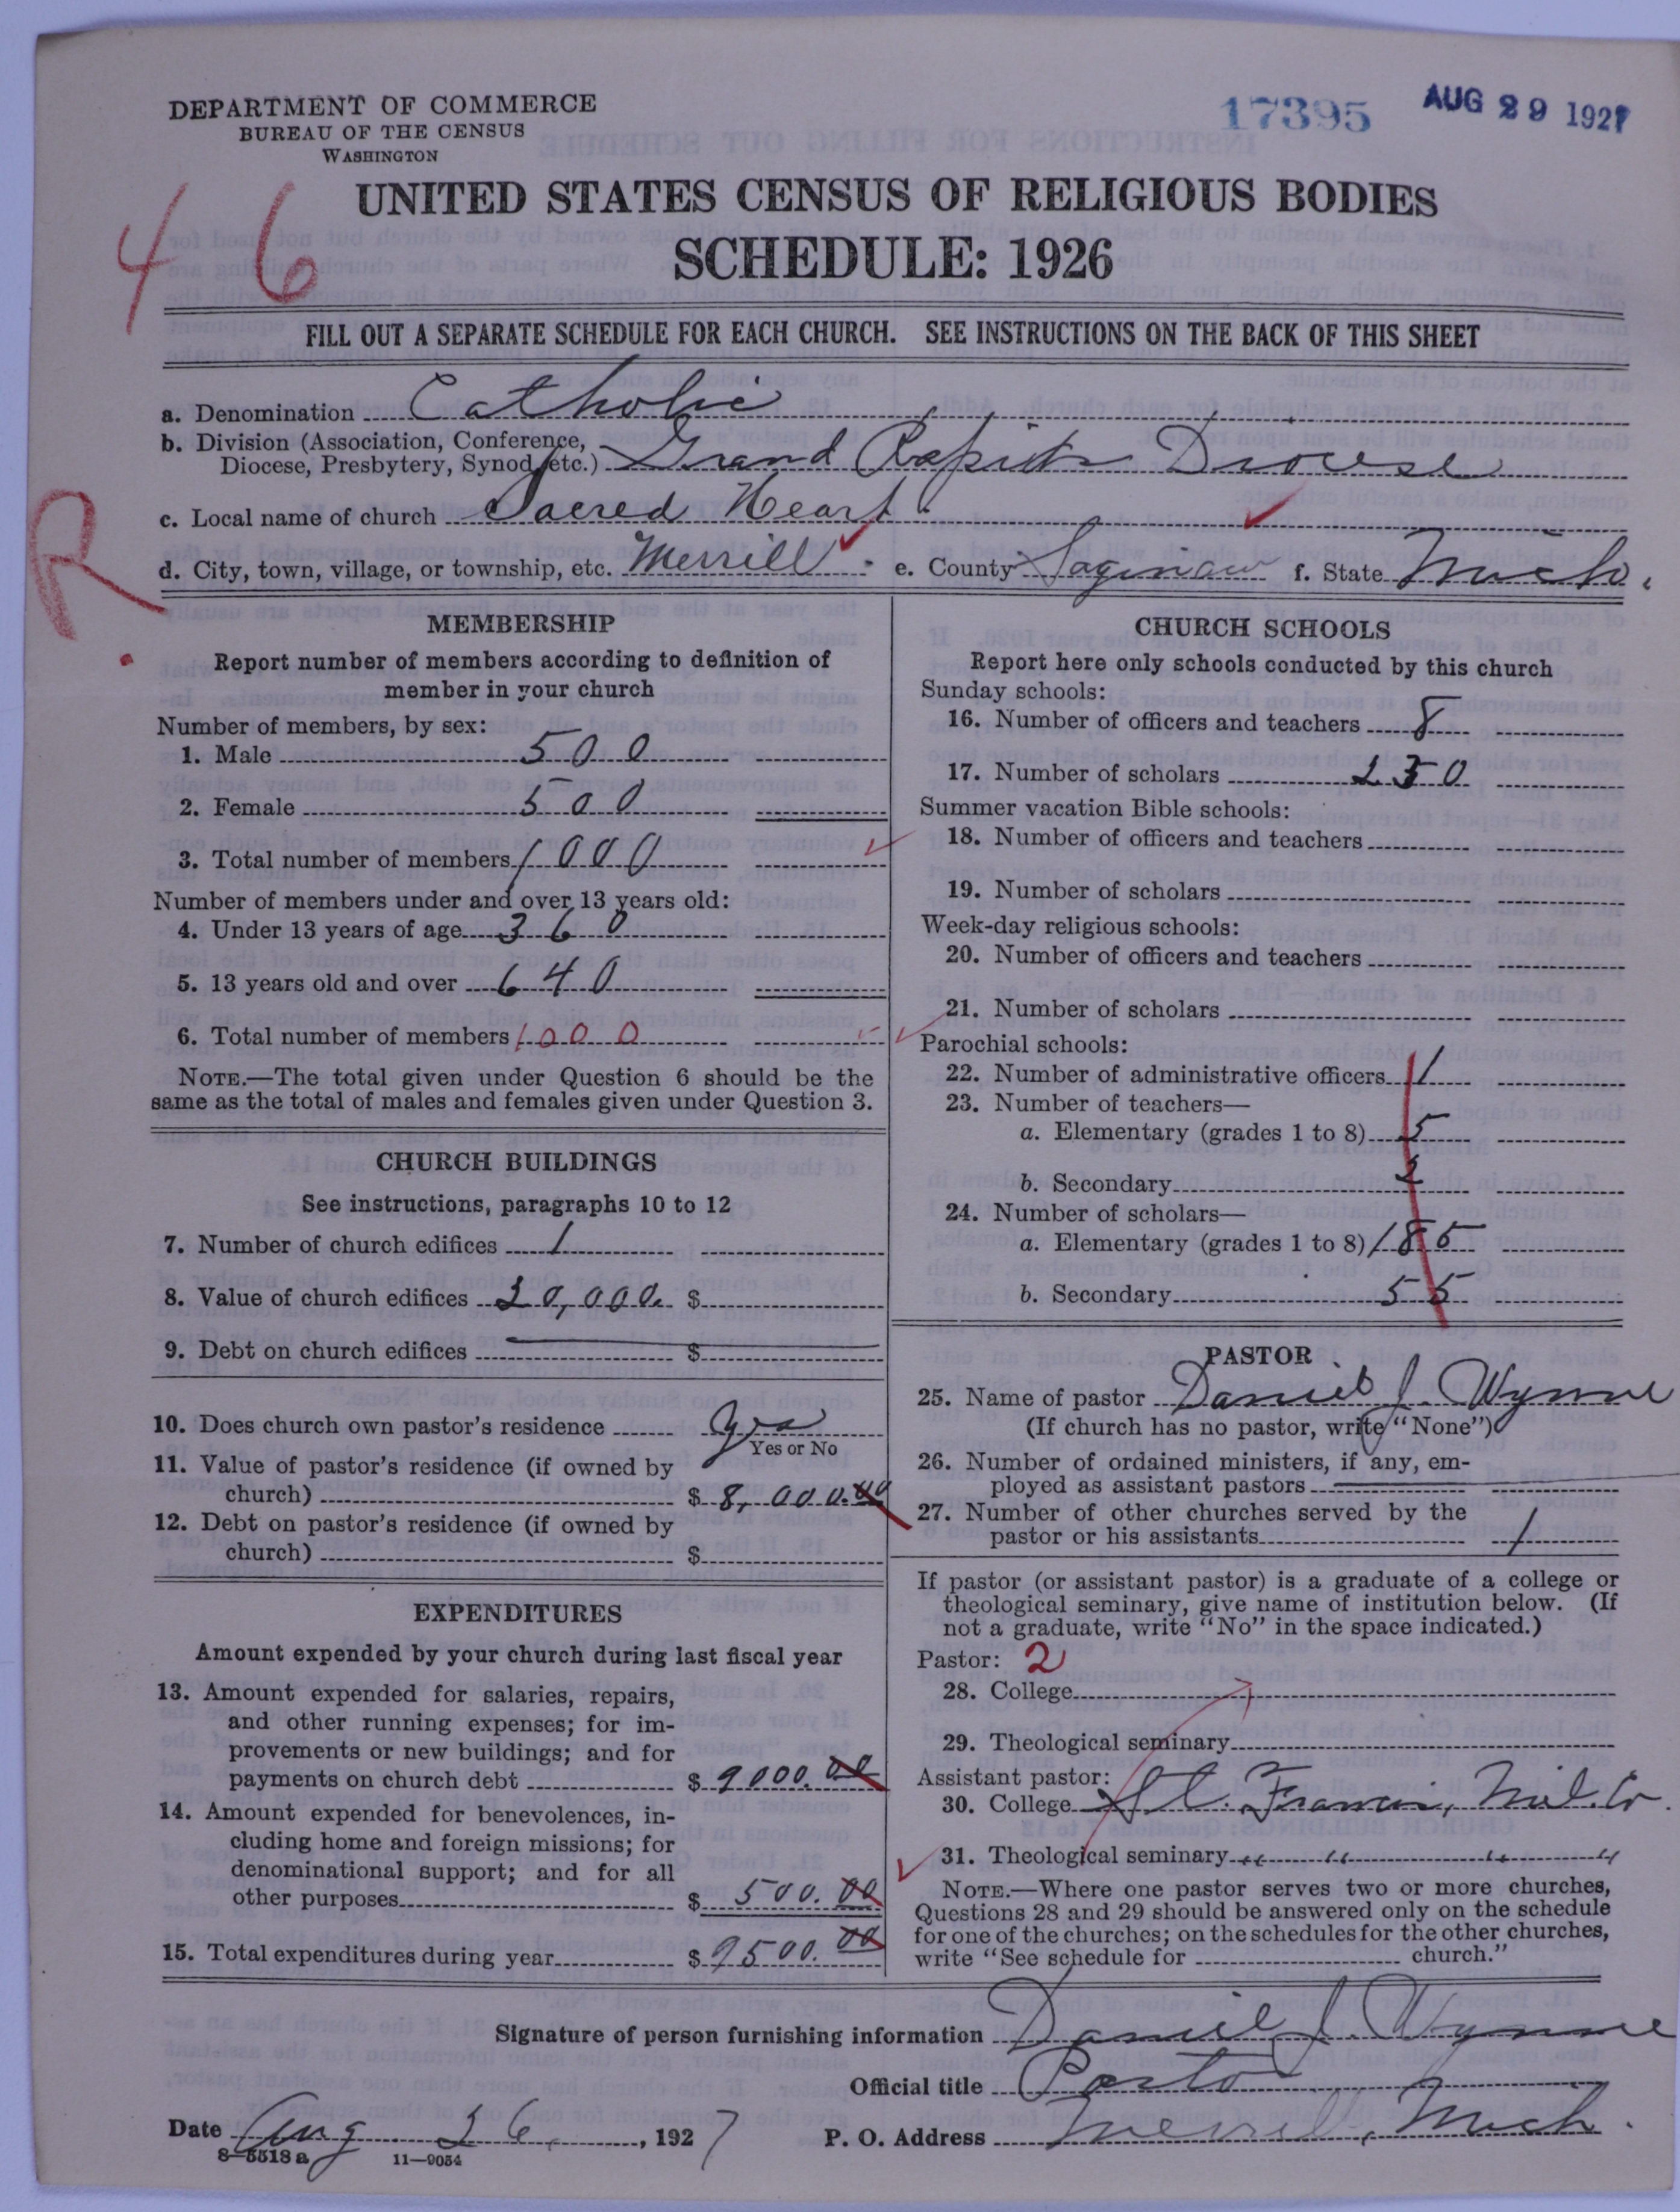 DEPARTMENT OF COMMERCE
BUREAU OF THE CENSUS
WASHINGTON
17395 AUG 29 1927
46
UNITED STATES CENSUS OF RELIGIOUS BODIES
SCHEDULE: 1926
FILL OUT A SEPARATE SCHEDULE FOR EACH CHURCH. SEE INSTRUCTIONS ON THE BACK OF THIS SHEET
a. Denomination Catholic
b. Division (Association, Conference,
Diocese, Presbytery, Synod, etc.) Grand Rapids Diocese
R.
c. Local name of church Sacred Heart
d. City, town, village, or township, etc. Merrill. e. County Saginaw f. State Mich.
MEMBERSHIP
Report number of members according to definition of
member in your church
Number of members, by sex:
1. Male 500
2. Female 500
3. Total number of members 1000
Number of members under and over 13 years old:
4. Under 13 years of age 360
5. 13 years old and over 640
6. Total number of members 1000
NOTE.—The total given under Question 6 should be the
same as the total of males and females given under Question 3.
CHURCH BUILDINGS
See instructions, paragraphs 10 to 12
7. Number of church edifices 1
8. Value of church edifices 20,000. $
9. Debt on church edifices $
10. Does church own pastor's residence yes
Yes or No
11. Value of pastor's residence (if owned by
church) $ 8,000.00
12. Debt on pastor's residence (if owned by
church) $
EXPENDITURES
Amount expended by your church during last fiscal year
13. Amount expended for salaries, repairs,
and other running expenses; for im-
provements or new buildings; and for
payments on church debt $ 9000.00
14. Amount expended for benevolences, in-
cluding home and foreign missions; for
denominational support; and for all
other purposes $ 500.00
15. Total expenditures during year $ 9500.00
CHURCH SCHOOLS
Report here only schools conducted by this church
Sunday schools:
16. Number of officers and teachers 8
17. Number of scholars 250
Summer vacation Bible schools:
18. Number of officers and teachers
19. Number of scholars
Week-day religious schools:
20. Number of officers and teachers
21. Number of scholars
Parochial schools:
22. Number of administrative officers 1
23. Number of teachers—
a. Elementary (grades 1 to 8) 5
b. Secondary 2
24. Number of scholars—
a. Elementary (grades 1 to 8) 185
b. Secondary 55
PASTOR
25. Name of pastor Daniel J. Wynne
(If church has no pastor, write "None")
26. Number of ordained ministers, if any, em-
ployed as assistant pastors
27. Number of other churches served by the
pastor or his assistants 1
If pastor (or assistant pastor) is a graduate of a college or
theological seminary, give name of institution below. (If
not a graduate, write "No" in the space indicated.)
Pastor: 2
28. College
29. Theological seminary
Assistant pastor:
30. College St. Francis, Mil.
31. Theological seminary " " " "
NOTE.—Where one pastor serves two or more churches,
Questions 28 and 29 should be answered only on the schedule
for one of the churches; on the schedules for the other churches,
write "See schedule for church."
Signature of person furnishing information Daniel J. Wynne
Official title Pastor
Date Aug 26, 1927 P. O. Address Merrill, Mich.
8-5518 a 11-9054